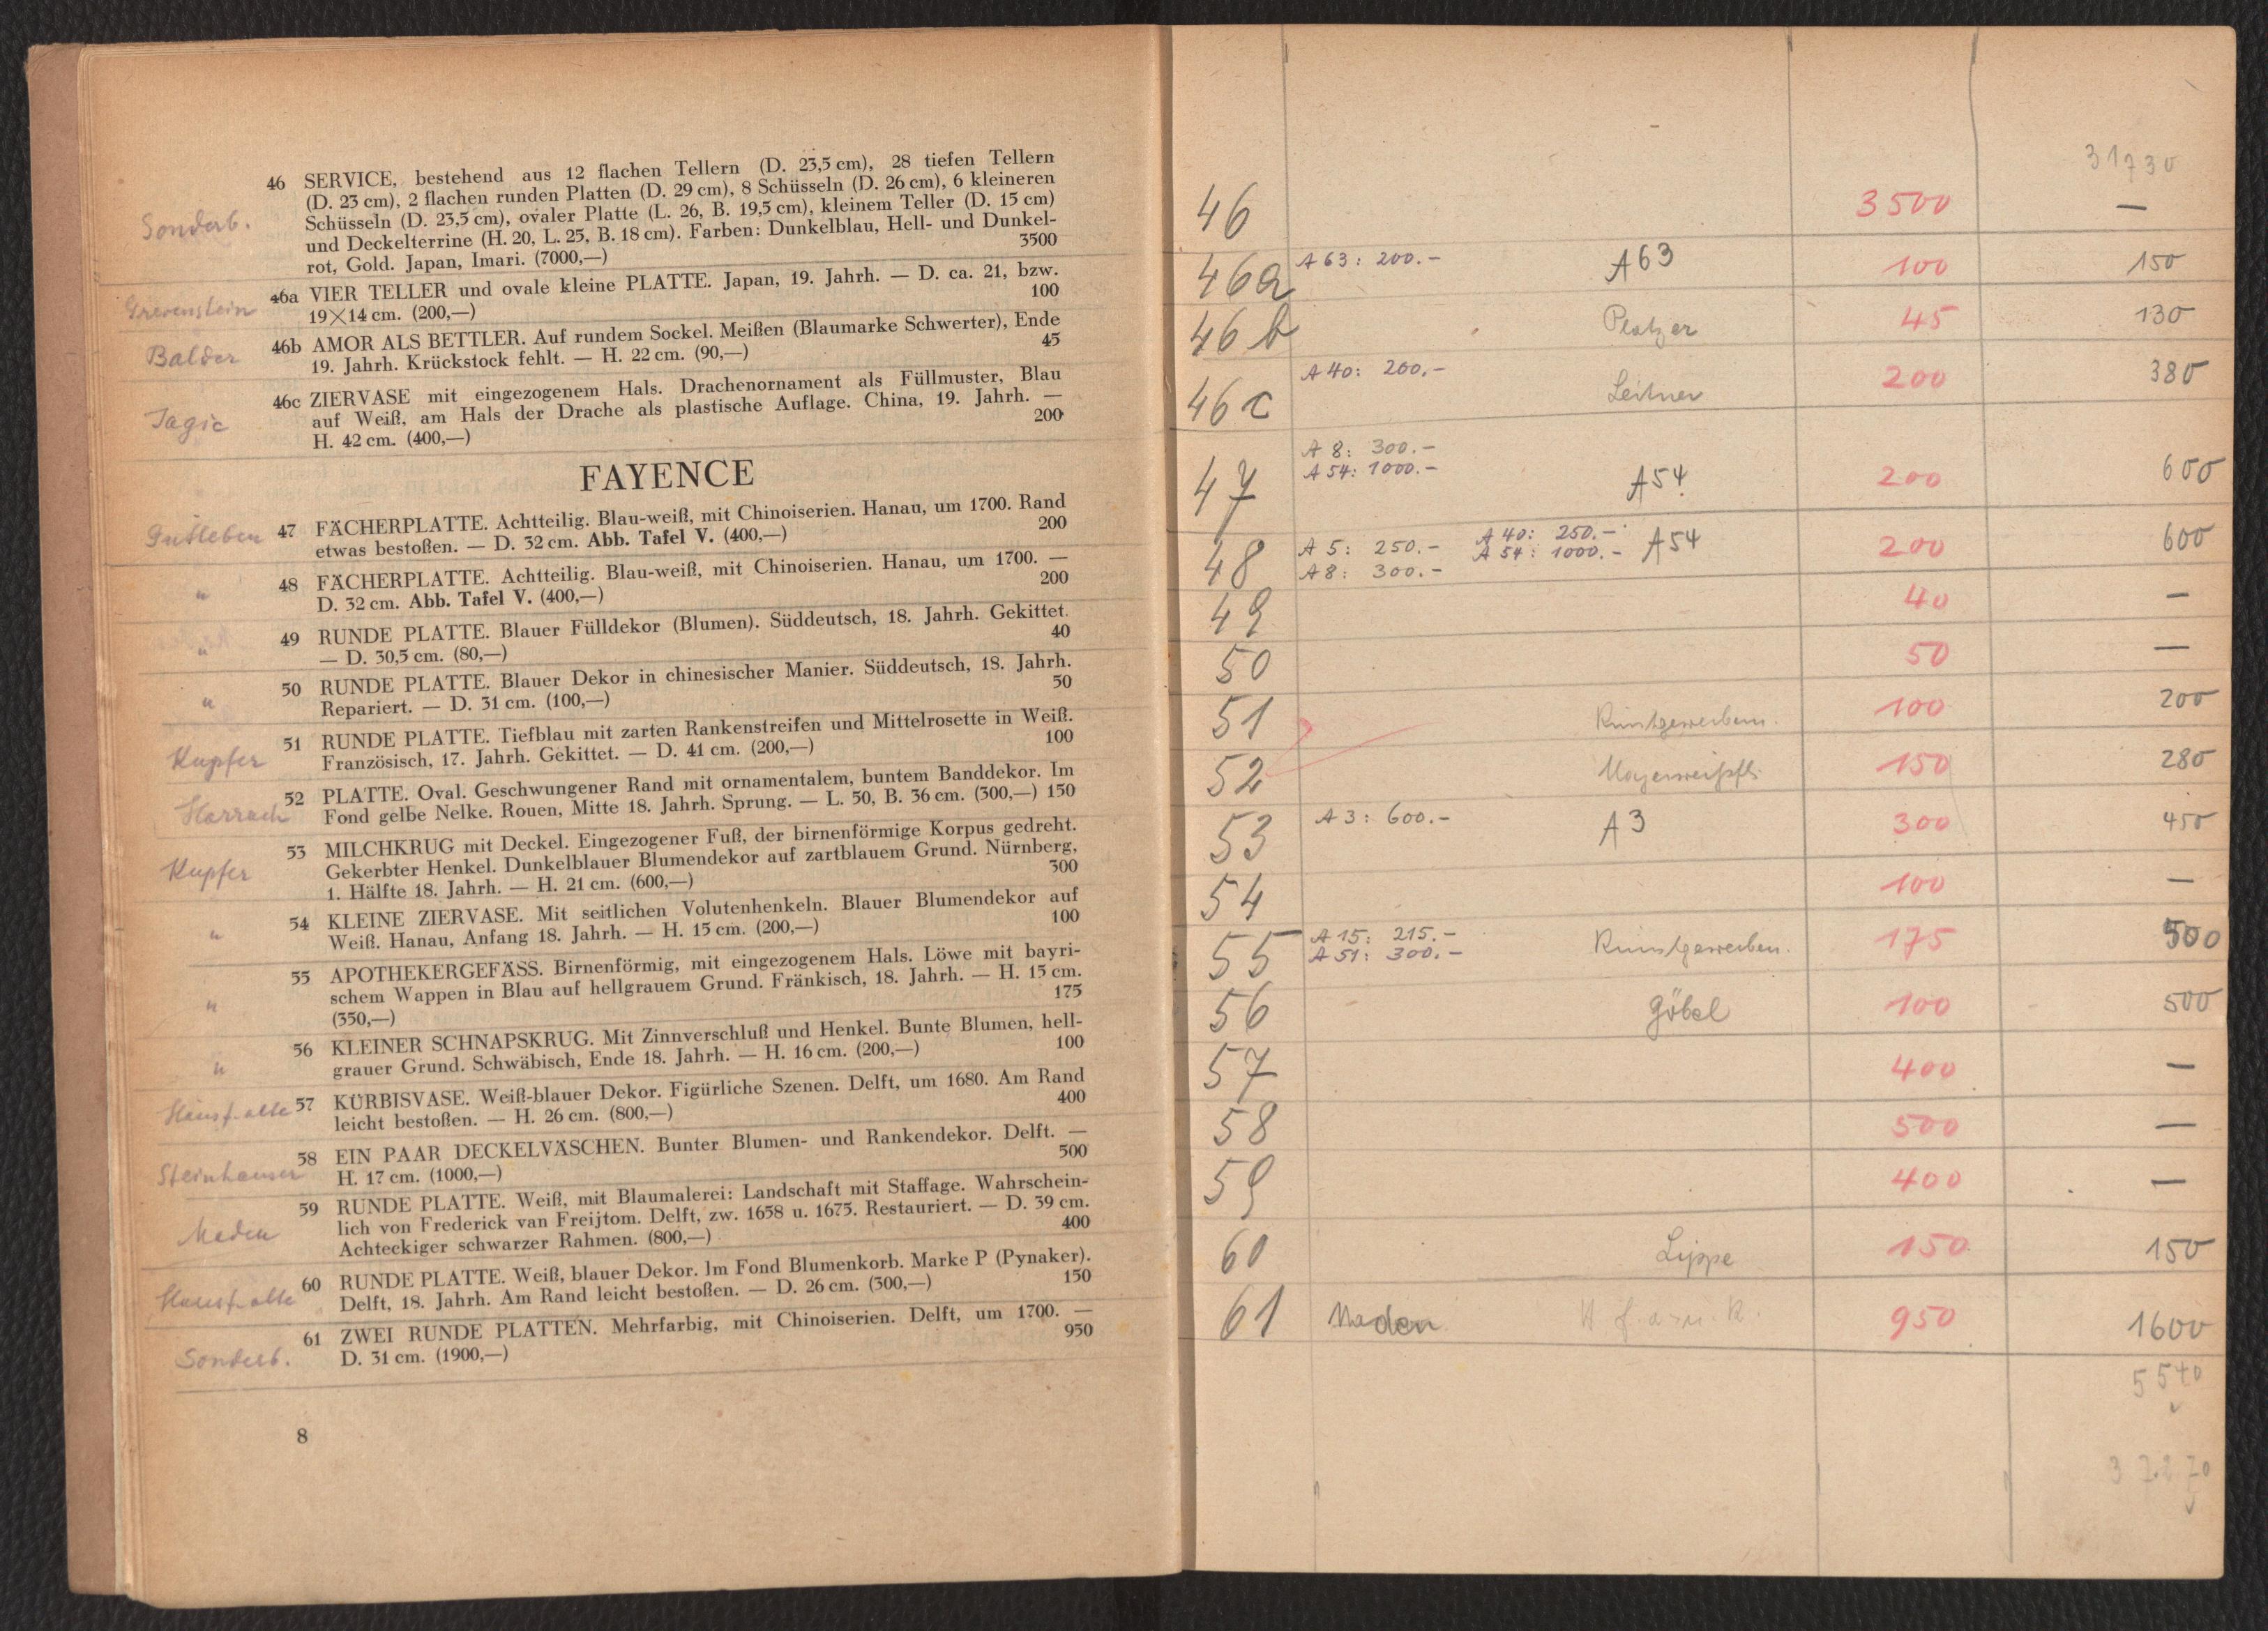 Sonderb.
46 SERVICE, bestehend aus 12 flachen Tellern (D. 23,5 cm), 28 tiefen Tellern
(D. 23 cm), 2 flachen runden Platten (D. 29 cm), 8 Schüsseln (D. 26 cm), 6 kleineren
Schüsseln (D. 23,5 cm), ovaler Platte (L. 26, B. 19,5 cm), kleinem Teller (D. 15 cm)
und Deckelterrine (H. 20, L. 25, B. 18 cm). Farben: Dunkelblau, Hell- und Dunkel-
rot, Gold. Japan, Imari. (7000,—) 3500
Grevenstein
46a VIER TELLER und ovale kleine PLATTE. Japan, 19. Jahrh. — D. ca. 21, bzw.
19×14 cm. (200,—) 100
Balder
46b AMOR ALS BETTLER. Auf rundem Sockel. Meißen (Blaumarke Schwerter), Ende
19. Jahrh. Krückstock fehlt. — H. 22 cm. (90,—) 45
Jagic
46c ZIERVASE mit eingezogenem Hals. Drachenornament als Füllmuster, Blau
auf Weiß, am Hals der Drache als plastische Auflage. China, 19. Jahrh. —
H. 42 cm. (400,—) 200
FAYENCE
47 FÄCHERPLATTE. Achtteilig. Blau-weiß, mit Chinoiserien. Hanau, um 1700. Rand
etwas bestoßen. — D. 32 cm. Abb. Tafel V. (400,—) 200
"
48 FÄCHERPLATTE. Achtteilig. Blau-weiß, mit Chinoiserien. Hanau, um 1700. —
D. 32 cm. Abb. Tafel V. (400,—) 200
"
49 RUNDE PLATTE. Blauer Fülldekor (Blumen). Süddeutsch, 18. Jahrh. Gekittet.
— D. 30,5 cm. (80,—) 40
"
50 RUNDE PLATTE. Blauer Dekor in chinesischer Manier. Süddeutsch, 18. Jahrh.
Repariert. — D. 31 cm. (100,—) 50
Kupfer
51 RUNDE PLATTE. Tiefblau mit zarten Rankenstreifen und Mittelrosette in Weiß.
Französisch, 17. Jahrh. Gekittet. — D. 41 cm. (200,—) 100
Harrach
52 PLATTE. Oval. Geschwungener Rand mit ornamentalem, buntem Banddekor. Im
Fond gelbe Nelke. Rouen, Mitte 18. Jahrh. Sprung. — L. 50, B. 36 cm. (300,—) 150
Kupfer
53 MILCHKRUG mit Deckel. Eingezogener Fuß, der birnenförmige Korpus gedreht.
Gekerbter Henkel. Dunkelblauer Blumendekor auf zartblauem Grund. Nürnberg,
1. Hälfte 18. Jahrh. — H. 21 cm. (600,—) 300
"
54 KLEINE ZIERVASE. Mit seitlichen Volutenhenkeln. Blauer Blumendekor auf
Weiß. Hanau, Anfang 18. Jahrh. — H. 15 cm. (200,—) 100
"
55 APOTHEKERGEFÄSS. Birnenförmig, mit eingezogenem Hals. Löwe mit bayri-
schem Wappen in Blau auf hellgrauem Grund. Fränkisch, 18. Jahrh. — H. 15 cm.
(350,—) 175
"
56 KLEINER SCHNAPSKRUG. Mit Zinnverschluß und Henkel. Bunte Blumen, hell-
grauer Grund. Schwäbisch, Ende 18. Jahrh. — H. 16 cm. (200,—) 100
57 KÜRBISVASE. Weiß-blauer Dekor. Figürliche Szenen. Delft, um 1680. Am Rand
leicht bestoßen. — H. 26 cm. (800,—) 400
Steinhauser
58 EIN PAAR DECKELVÄSCHEN. Bunter Blumen- und Rankendekor. Delft. —
H. 17 cm. (1000,—) 500
Maden
59 RUNDE PLATTE. Weiß, mit Blaumalerei: Landschaft mit Staffage. Wahrschein-
lich von Frederick van Freijtom. Delft, zw. 1658 u. 1675. Restauriert. — D. 39 cm.
Achteckiger schwarzer Rahmen. (800,—) 400
60 RUNDE PLATTE. Weiß, blauer Dekor. Im Fond Blumenkorb. Marke P (Pynaker).
Delft, 18. Jahrh. Am Rand leicht bestoßen. — D. 26 cm. (300,—) 150
Sonderb.
61 ZWEI RUNDE PLATTEN. Mehrfarbig, mit Chinoiserien. Delft, um 1700. —
D. 31 cm. (1900,—) 950
8
31730
46 3500 —
46a A 63: 200.— A 63 100 150
46b Platzer 45 130
46c A 40: 200.— Leitner 200 380
A 8: 300.—
47 A 54: 1000.— A 54 200 600
A 40: 250.—
48 A 5: 250.— A 54: 1000.— A 54 200 600
A 8: 300.—
49 40 —
50 50 —
51 Kunstgewerbem. 100 200
52 150 280
53 A 3: 600.— A 3 300 450
54 100 —
55 A 15: 215.— Kunstgewerbem. 175 500
A 51: 300.—
56 Göbel 100 500
57 400 —
58 500 —
59 400 —
60 Lippe 150 150
61 Maden 950 1600
5540
37.270